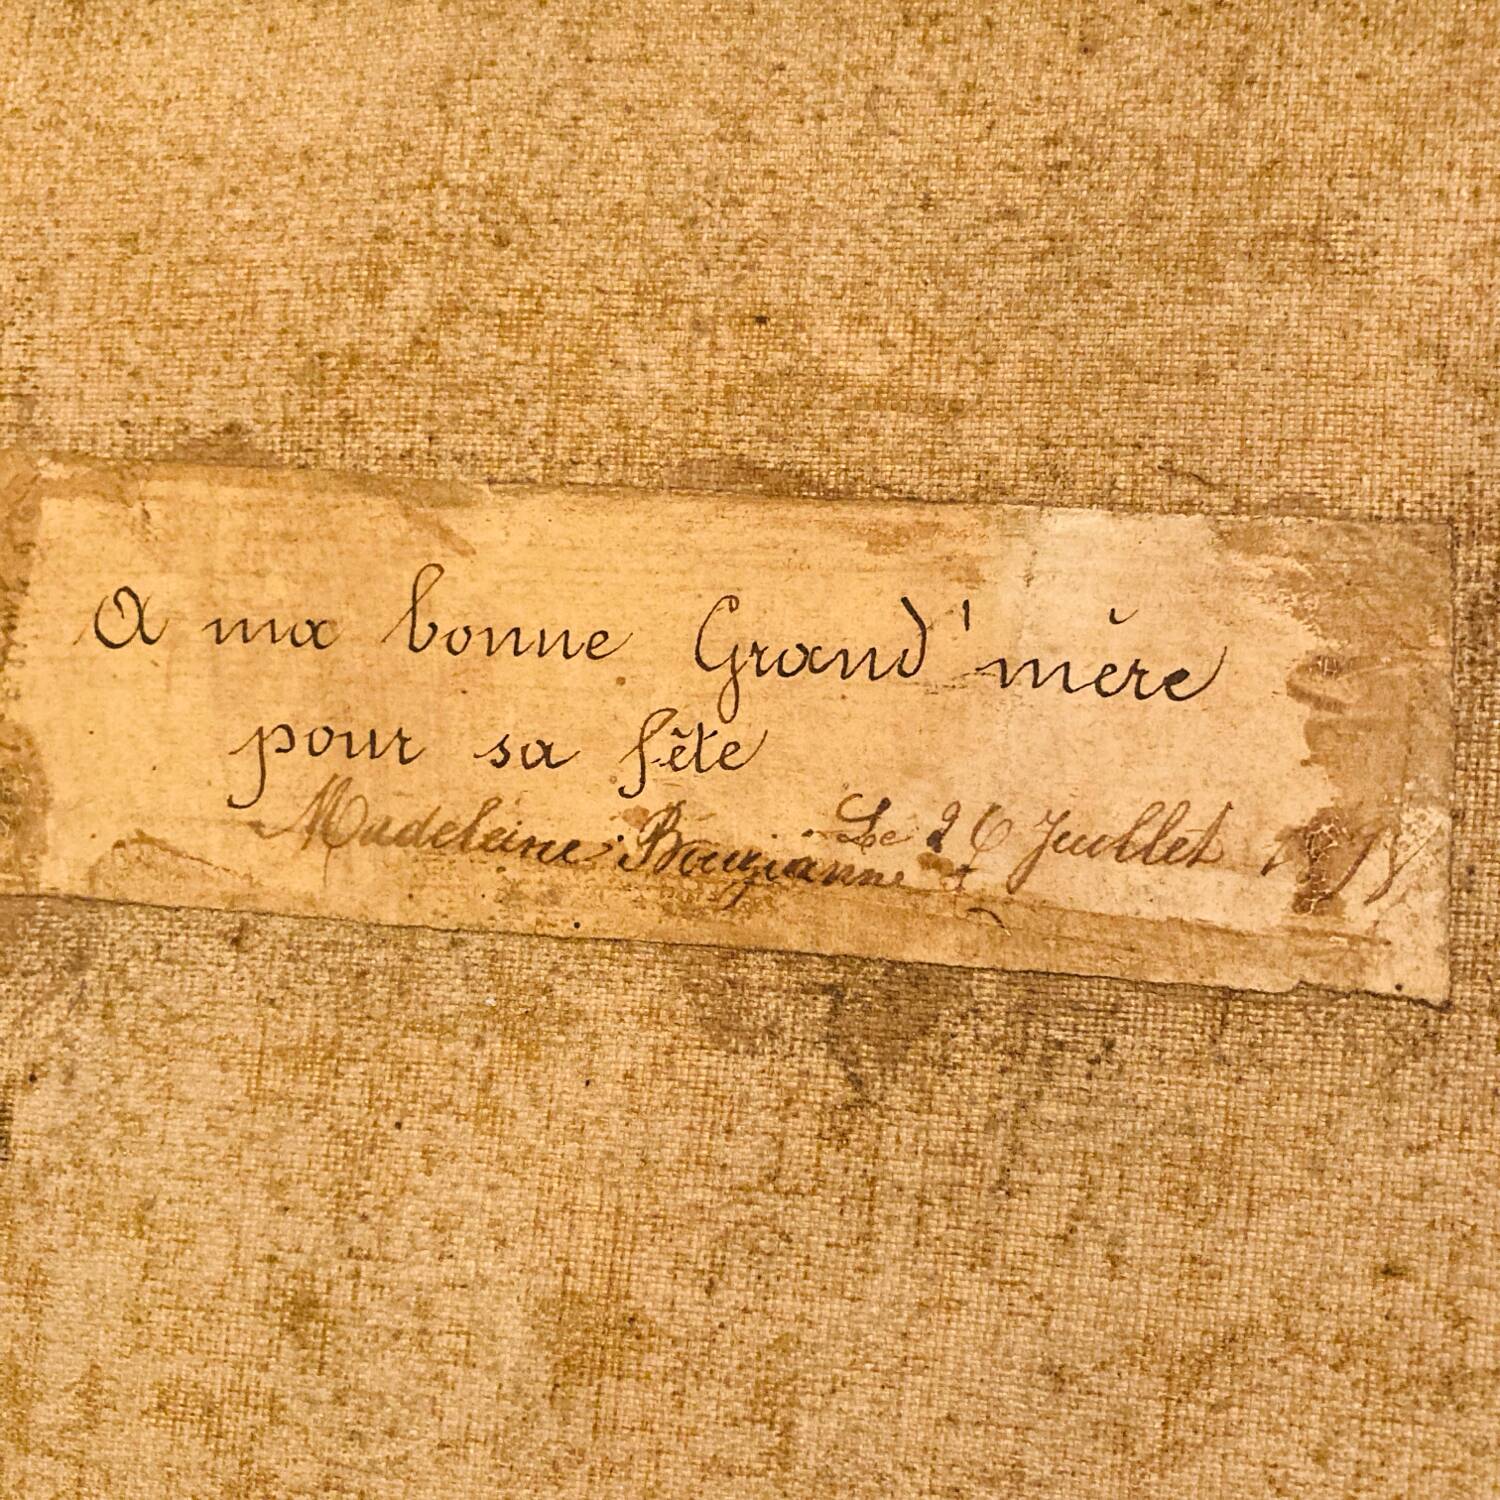 A ma bonne Grand'mère
pour sa fête
Madeleine Le 26 Juillet